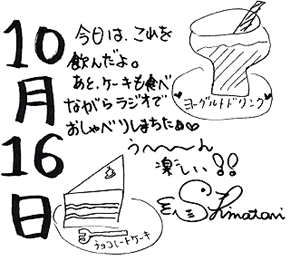 10月16日
今日は、これを
飲んだよ。
あと、ケーキも食べ
ながらラジオで
おしゃべりしまちたぁ♡
う〜〜〜ん
楽しい!!
Shimatani
ヨーグルトドリンク
チョコレートケーキ